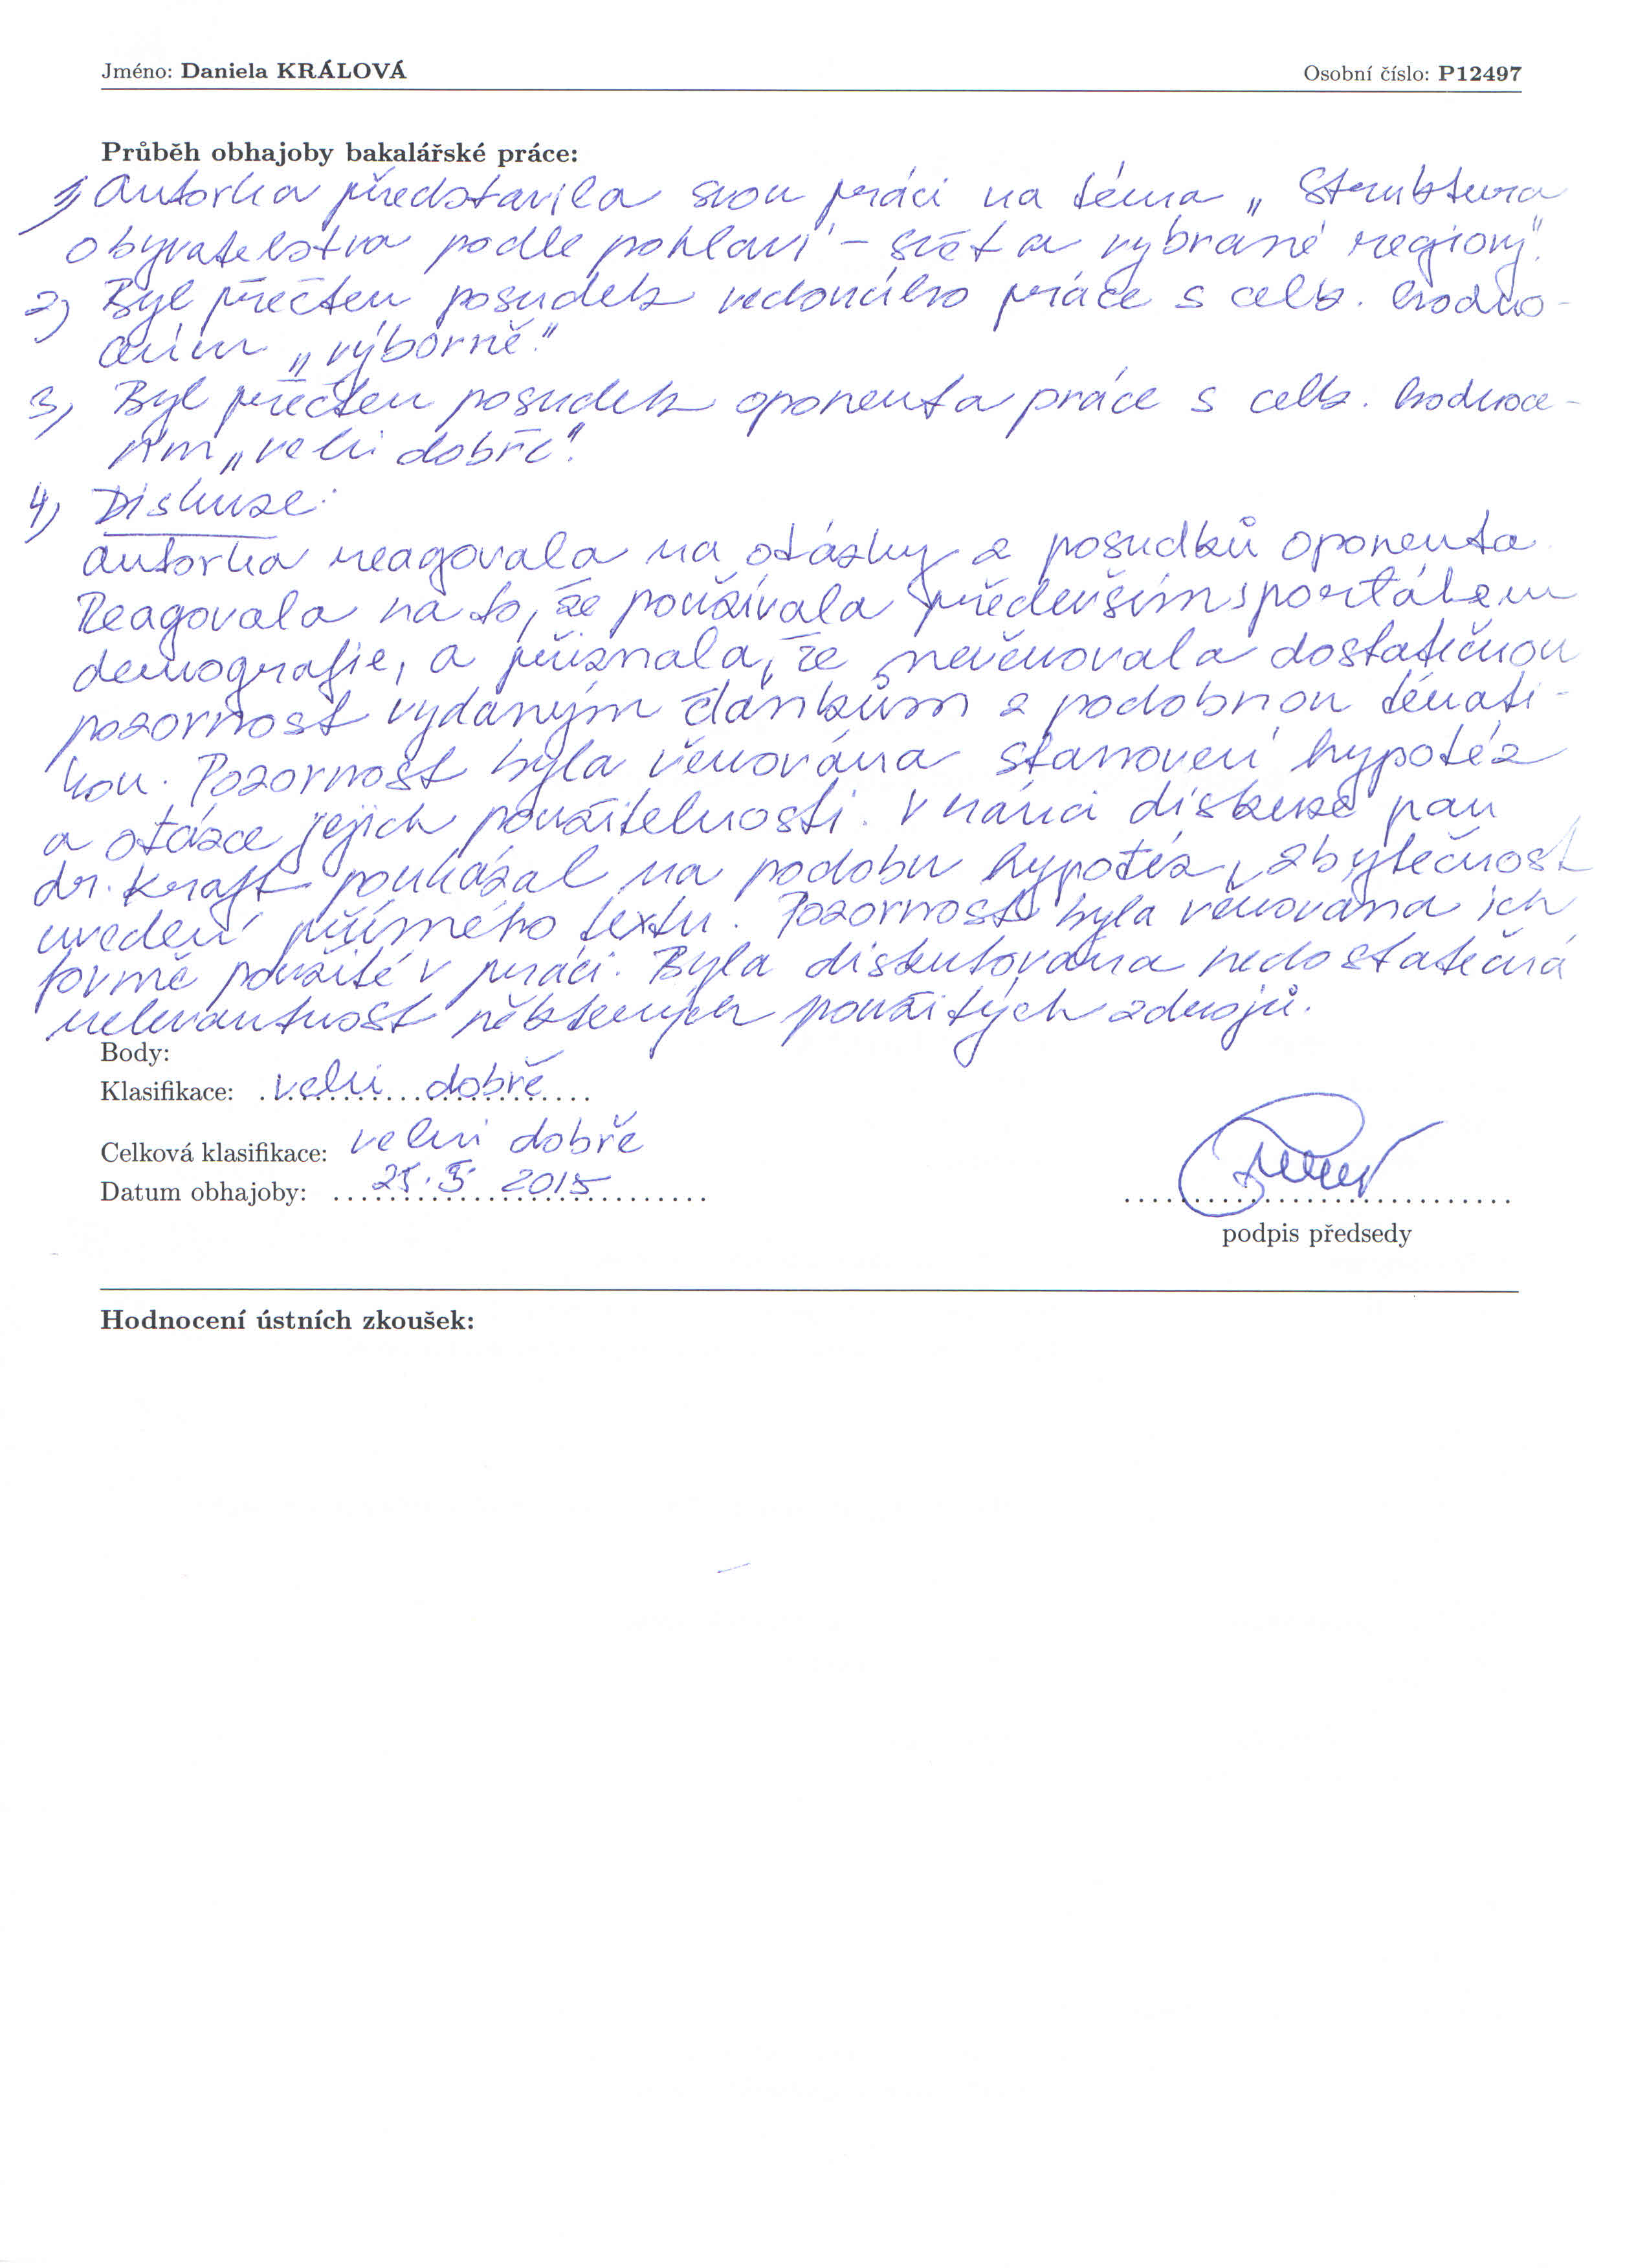 Jméno: Daniela KRÁLOVÁ Osobní číslo: P12497
Průběh obhajoby bakalářské práce:
1) Autorka představila svou práci na téma „Struktura
obyvatelstva podle pohlaví – svět a vybrané regiony".
2) Byl přečten posudek vedoucího práce s celk. hodno-
cením „výborně".
3) Byl přečten posudek oponenta práce s celk. hodnoce-
ním „velmi dobře".
4) Diskuze:
Autorka reagovala na otázky z posudků oponenta.
Reagovala na to, že používala především s portálem
demografie, a přiznala, že nevěnovala dostatečnou
pozornost vydaným článkům s podobnou témati-
kou. Pozornost byla věnována stanovení hypotéz
a otázce jejich použitelnosti. V rámci diskuze pan
dr. Kraft poukázal na podobu hypotéz, zbytečnost
uvedení přímého textu. Pozornost byla věnována ich
formě použité v práci. Byla diskutována nedostatečná
relevantnost některých použitých zdrojů.
Body:
Klasifikace: velmi dobře
Celková klasifikace: velmi dobře
Datum obhajoby: 25. 5. 2015
podpis předsedy
Hodnocení ústních zkoušek: